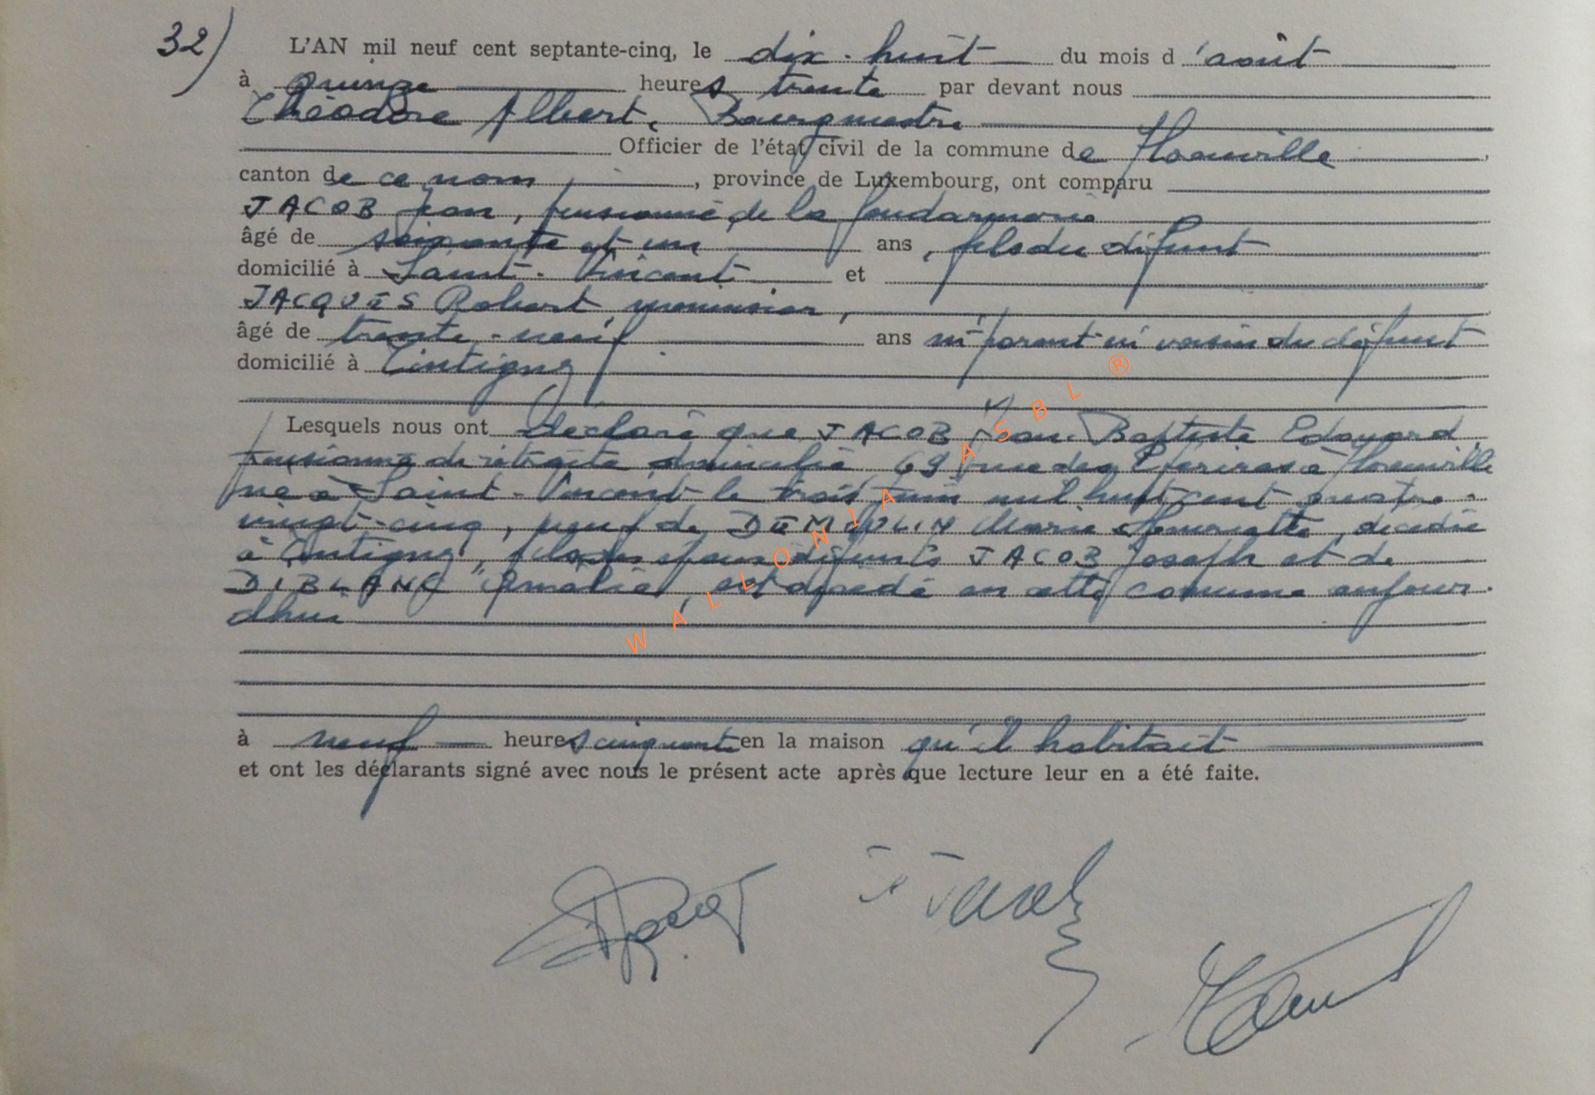 32) L'AN mil neuf cent septante-cinq, le dix-huit du mois d'août
à quinze heures trente par devant nous
Théodore Albert, Bourgmestre
Officier de l'état civil de la commune de Florenville
canton de ce nom, province de Luxembourg, ont comparu
JACOB Jean, pensionné de la gendarmerie
âgé de soixante et un ans, fils du défunt
domicilié à Saint-Vincent et
JACQUES Robert, menuisier,
âgé de trente-neuf ans ni parent ni voisin du défunt
domicilié à Tintigny
Lesquels nous ont déclaré que JACOB Jean Baptiste Edouard
pensionné de retraite domicilié 69 rue des à Florenville
né à Saint-Vincent le trois juin mil huit cent quatre-
vingt-cinq, veuf de DEMOULIN Marie décédée
à Tintigny, fils des époux défunts JACOB Joseph et de
DIBLANC Amélie, est décédé en cette commune aujour-
dhui
à neuf heures cinquante en la maison qu'il habitait
et ont les déclarants signé avec nous le présent acte après que lecture leur en a été faite.
WALLONIA ASBL ®